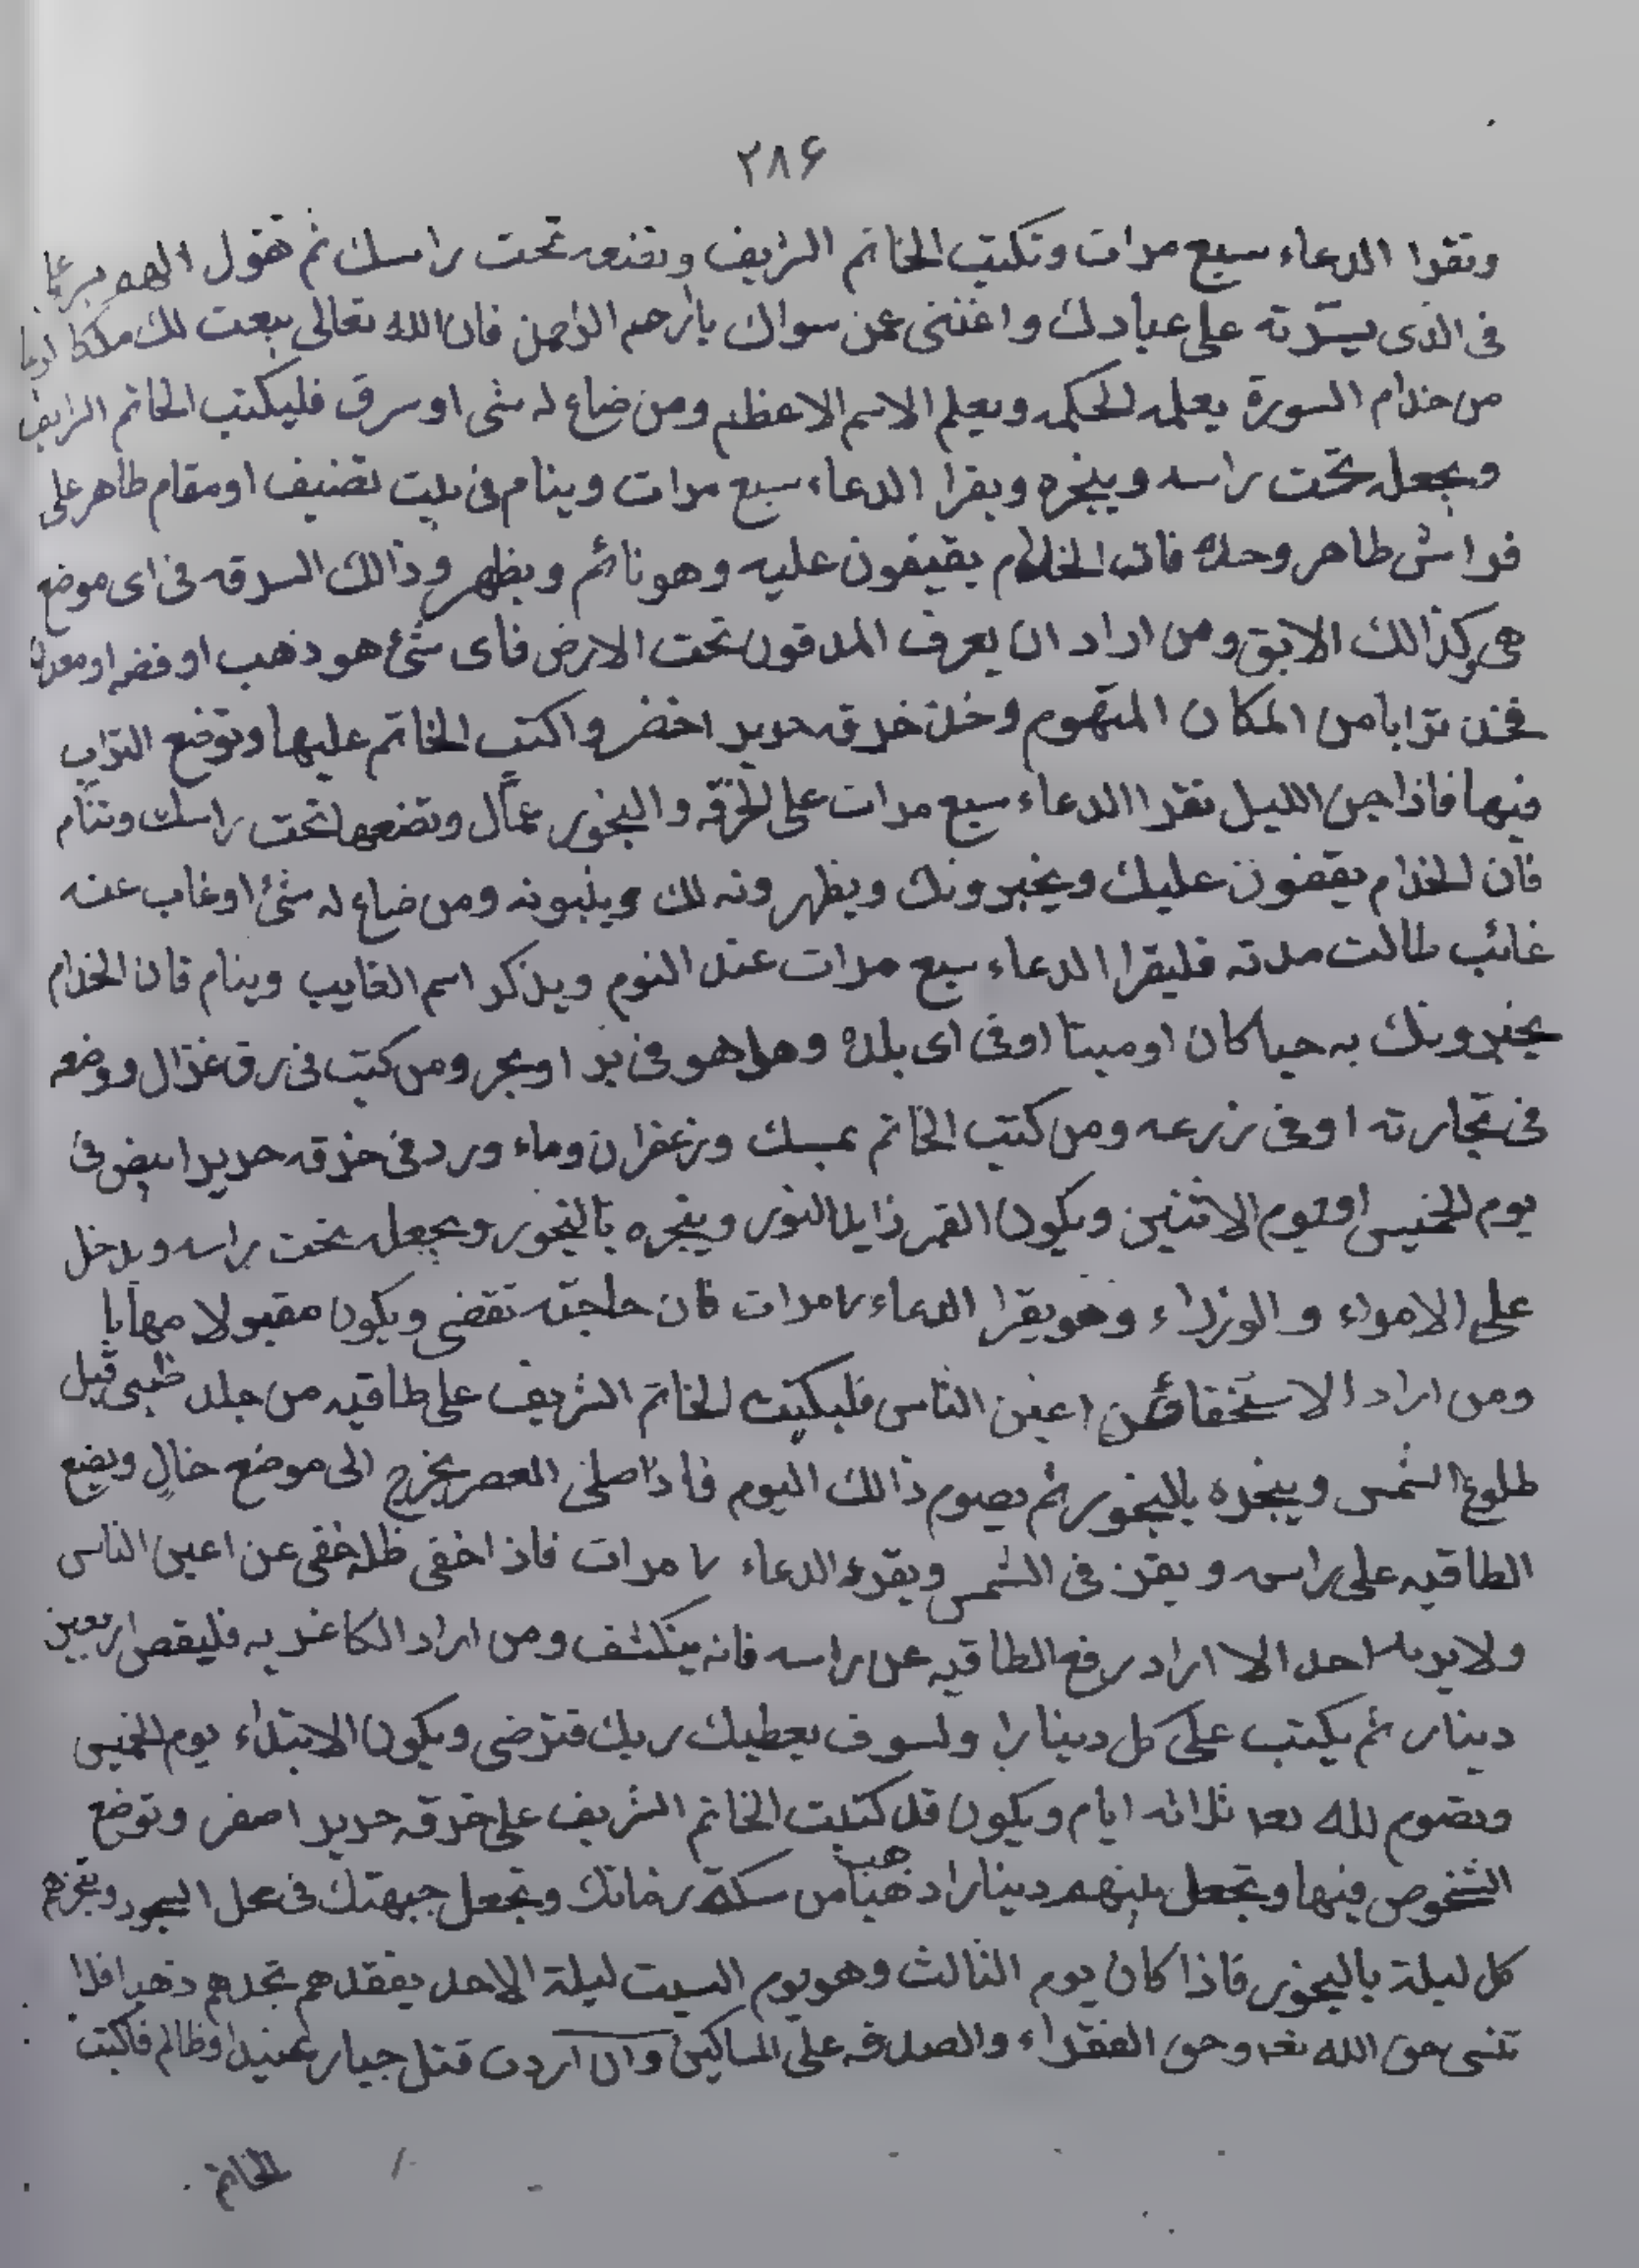 ٢٨۶
وتقرا الدعاء سبع مرات وتكتب الخاتم الشريف وتضعه تحت راسك ثم تقول اللهم
فى الذى يسّرته على عبادك واغننى عمن سواك يا ارحم الراحمين فان الله تعالى يبعث لك ملكا
من خدام السورة يعلمه الحكمه ويعلم الاسم الاعظم ومن ضاع له شى او سرق فليكتب الخاتم الشريف
ويجعله تحت راسه ويبخره ويقرا الدعاء سبع مرات وينام فى بيت نضيف او مقام طاهر على
فراش طاهر وحده فان الخدام يقيفون عليه وهو نائم ويظهر وذالك السرقه فى اى موضع
هى وكذالك الابق ومن اراد ان يعرف المدفون تحت الارض فاى شئ هو ذهب او فضه او معدن
فخذ ترابا من المكان المتهوم وخذ خرقه حرير اخضر واكتب الخاتم عليها وتوضع التراب
فيها فاذا جن الليل تقرا الدعاء سبع مرات على الخرقه والبخور عمّال وتضعها تحت راسك وتنام
فان الخدام يقفون عليك ويخبرونك ويظهرونه لك ومن ضاع له شئ او غاب عنه
غائب طالت مدته فليقرا الدعاء سبع مرات عند النوم ويذكر اسم الغايب وينام فان الخدام
يخبرونك به حيا كان او ميتا او فى اى بلده وهل هو فى بر او بحر ومن كتب فى رق غزال ووضعه
فى تجارته او فى زرعه ومن كتب الخاتم بمسك وزعفران وماء ورد فى خرقه حرير ابيض فى
يوم الخميس او يوم الاثنين ويكون القمر زايد النور ويبخره بالبخور ويجعله تحت راسه ويدخل
على الامراء والوزراء وهو يقرا الدعاء ٧ مرات فان حاجته تقضى ويكون مقبولا مهابا
ومن اراد الاستخفاء عن اعين الناس فليكتب الخاتم الشريف على طاقيه من جلد ظبى قبل
طلوع الشمس ويبخره بالبخور ثم يصوم ذالك اليوم فاذا صلى العصر يخرج الى موضع خالٍ ويضع
الطاقيه على راسه ويقف فى الشمس ويقرء الدعاء ٧ مرات فاذا خفى ظله خفى عن اعين الناس
ولا يراه احد الا اراد رفع الطاقيه عن راسه فانه ينكشف ومن اراد الكاغديه فليقص اربعين
دينار ثم يكتب على كل دينارا ولسوف يعطيك ربك فترضى ويكون الابتداء يوم الخميس
وتصوم لله تعا ثلاثه ايام ويكون قد كتبت الخاتم الشريف على خرقه حرير اصفر وتوضع
الشخوص فيها وتجعل بينهم دينارا ذهبا من سكة زمانك وتجعل جبهتك فى محل السجود وتبخرهم
كل ليلة بالبخور فاذا كان يوم الثالث وهو يوم السبت ليلة الاحد يفقدهم تجدهم ذهبا فلا
تنسى حق الله تعا وحق الفقراء والصدقه على المساكين وان اردت قتل جبار عنيدا وظالم فاكتب
الخاتم